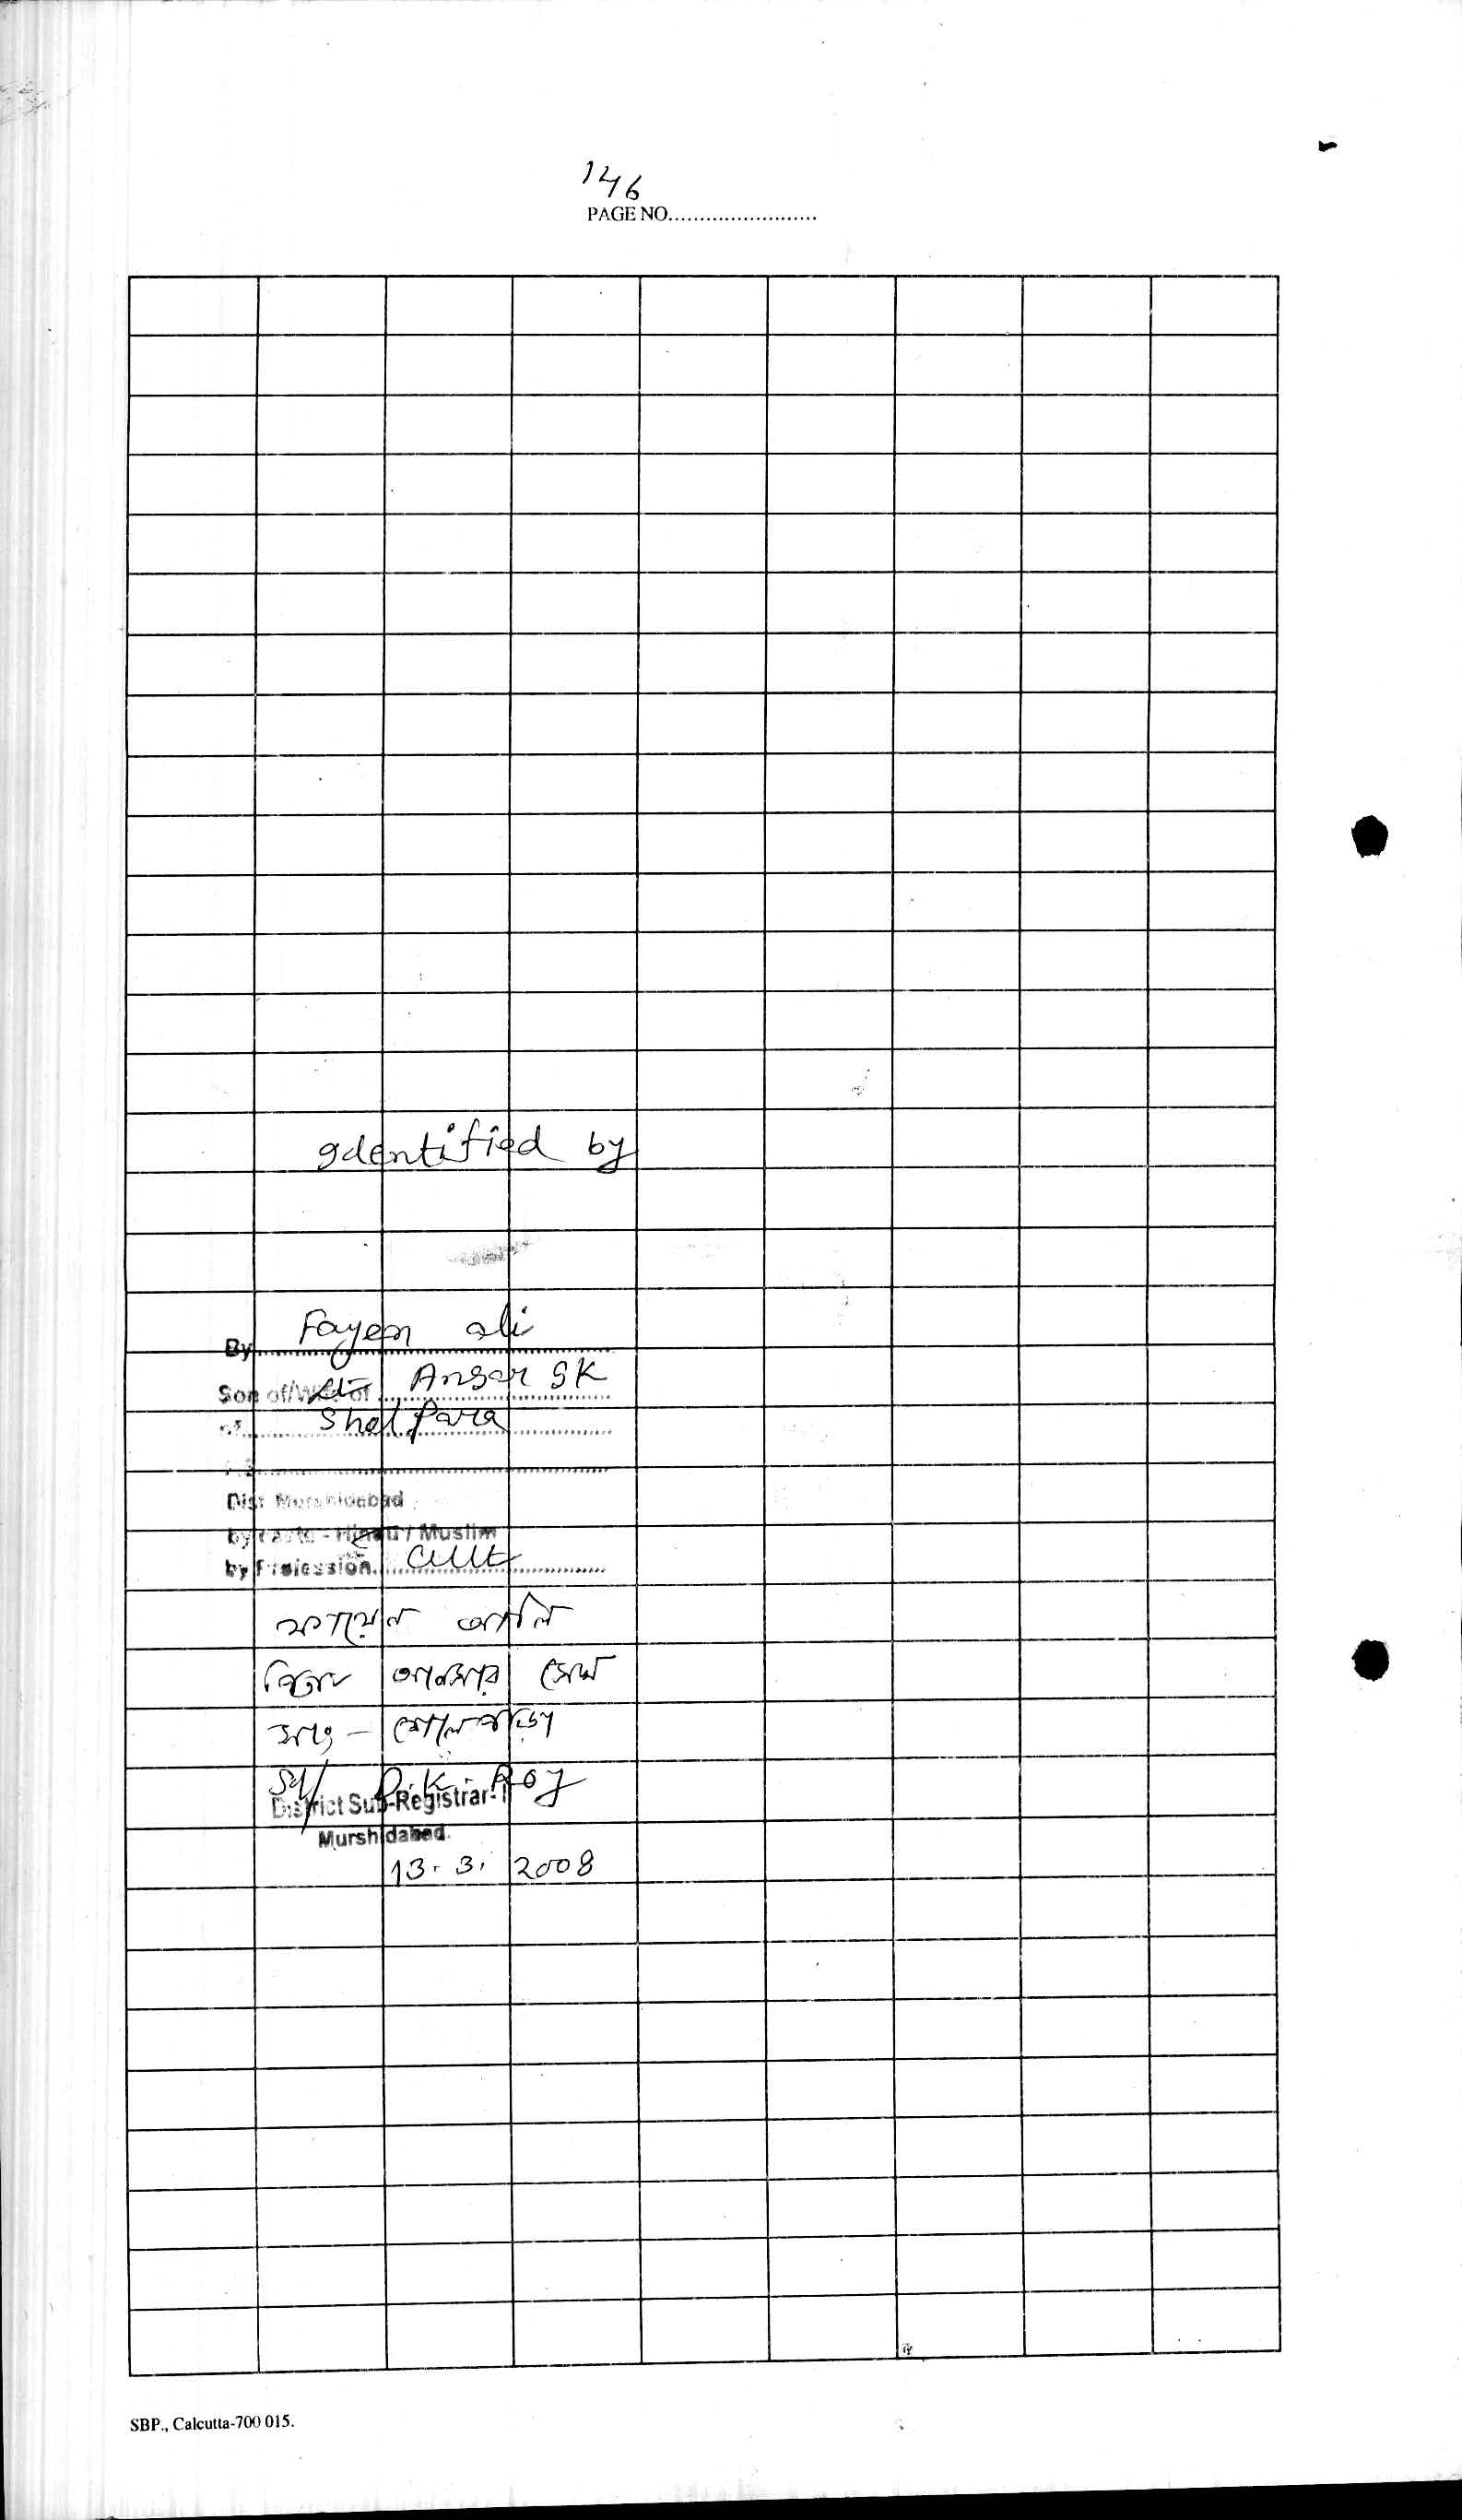 146
PAGE NO.........................
Identified by
By Fayem ali
Son of/Wife of Lt. Ansar SK
of Shal Para
P.S.
Dist Murshidabad
by caste - Hindu / Muslim
by Profession Cult
ফায়েন আলি
পিতা আনসার সেখ
সাং - শালপাড়া
Sd/ D. K. Roy
District Sub-Registrar-I
Murshidabad.
13. 3. 2008
SBP., Calcutta-700 015.